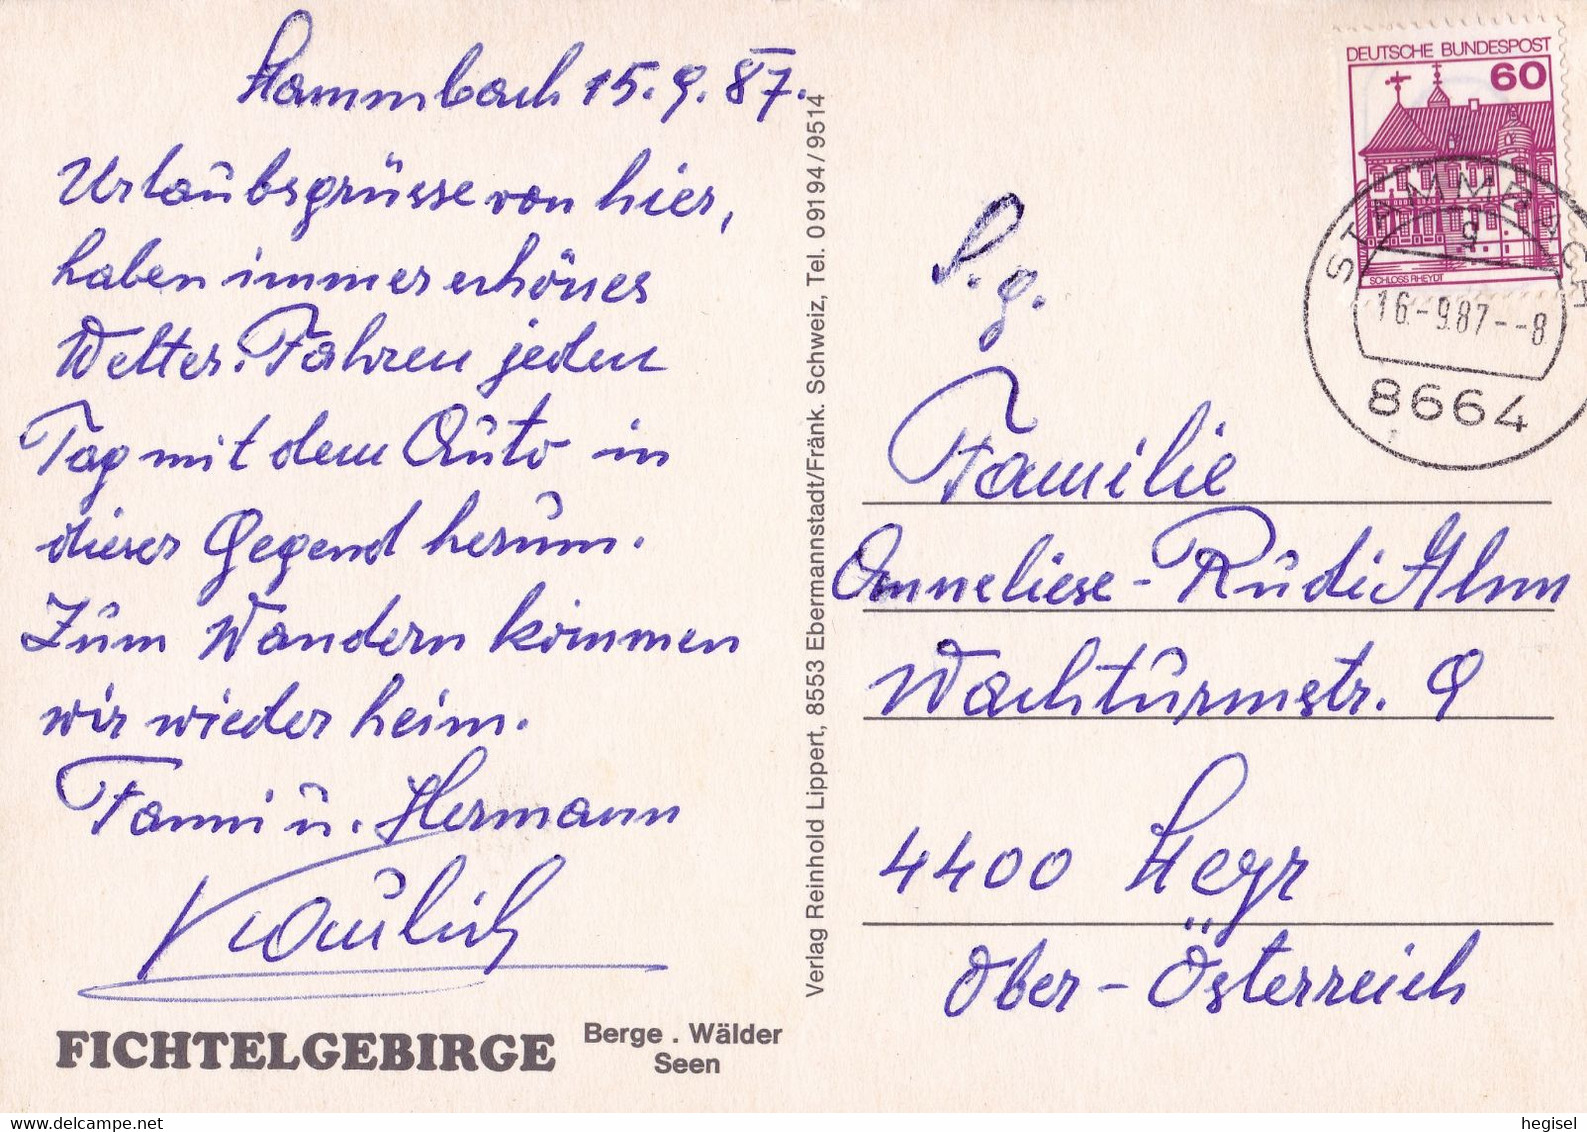 Stammbach 15.9.87.
Urlaubsgrüsse von hier,
haben immer schönes
Wetter. Fahren jeden
Tag mit dem Auto in
dieser Gegend herum.
Zum Wandern kommen
wir wieder heim.
Fanni u. Hermann
FICHTELGEBIRGE
Berge . Wälder
Seen
Verlag Reinhold Lippert, 8553 Ebermannstadt/Fränk. Schweiz, Tel. 09194/9514
DEUTSCHE BUNDESPOST
60
SCHLOSS RHEYDT
STAMMBACH
16.-9.87--8
8664
S. g.
Familie
Anneliese-Rudi Ahm
Wachturmstr. 9
4400 Steyr
Ober-Österreich
hegisel